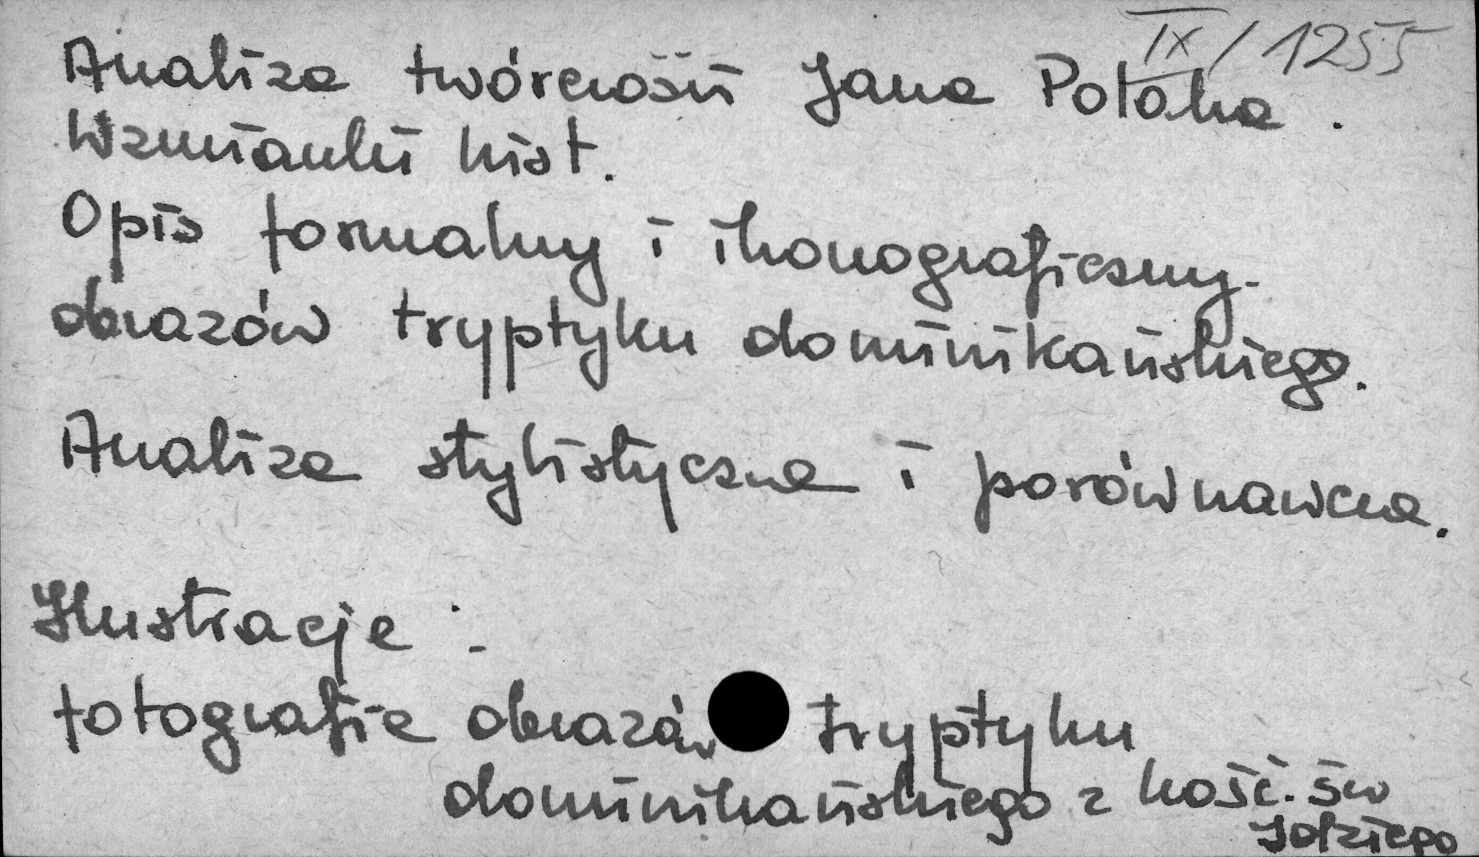 IX/1255
Analiza twórczości Jana Polaka.
Wzmianki hist.
Opis formalny i ikonograficzny
obrazów tryptyku dominikańskiego.
Analiza stylistyczna i porównawcza.
Ilustracje:
fotografie obrazów tryptyku
dominikańskiego z kość. św
Idziego